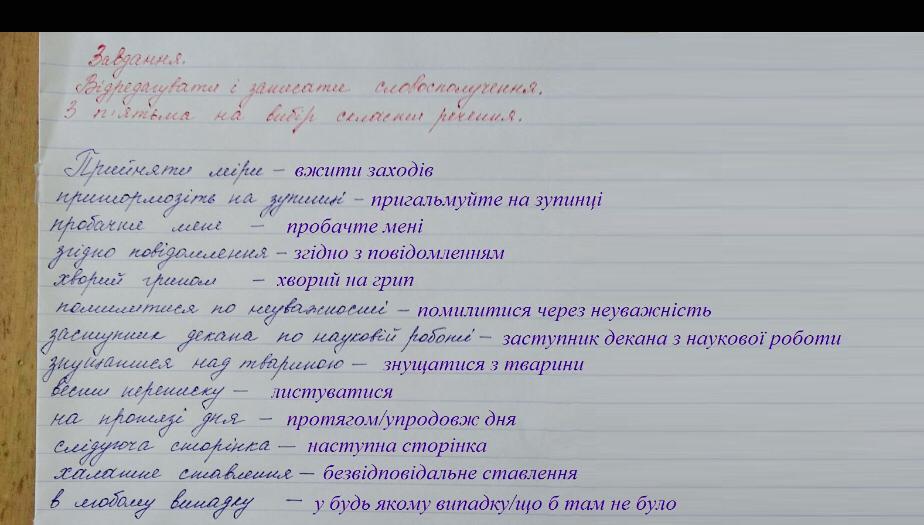 Завдання.
Відредагувати і записати словосполучення.
З п'ятьма на вибір скласти речення.
Прийняти міри – вжити заходів
пришормозіть на зупинці – пригальмуйте на зупинці
пробачте мене – пробачте мені
згідно повідомлення – згідно з повідомленням
хворий грипом – хворий на грип
помилитися по неуважності – помилитися через неуважність
заступник декана по науковій роботі – заступник декана з наукової роботи
знущатися над твариною – знущатися з тварини
вести переписку – листуватися
на протязі дня – протягом/упродовж дня
слідуюча сторінка – наступна сторінка
халатне ставлення – безвідповідальне ставлення
в любому випадку – у будь якому випадку/що б там не було